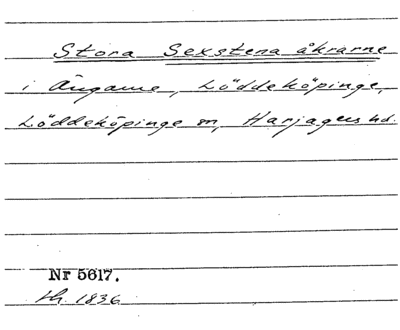 Stora Sexstena åkrarne
i Ängarne, Löddeköpinge,
Löddeköpinge sn, Harjagers hd.
Nr 5617.
1836